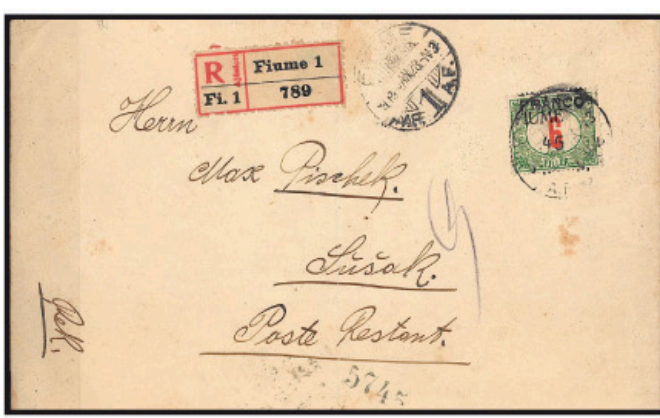 R
Fiume 1
Fi. 1
789
1
A.F.
FRANCO
FIUME
6
45
Herrn
Max Pischek.
Sušak.
Poste Restant.
Rek.
5745